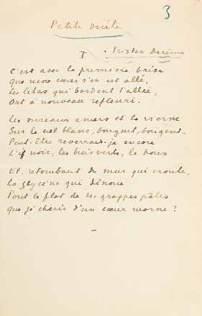 3
Petite suite
I
à Tristan Derème
C'est avec la première brise
que mon cœur s'en est allé,
les lilas qui bordent l'allée,
Ont à nouveau refleuri.
Les rameaux amers et la viorne
Sur le ciel blanc, bougent, bougent.
Peut-être reverrai-je encore
L'if noir, les buis verts, le houx
Et, retombant du mur qui croule,
La glycine qui dénoue
Tout le flot de ses grappes pâles
que je chéris d'un cœur morne ?